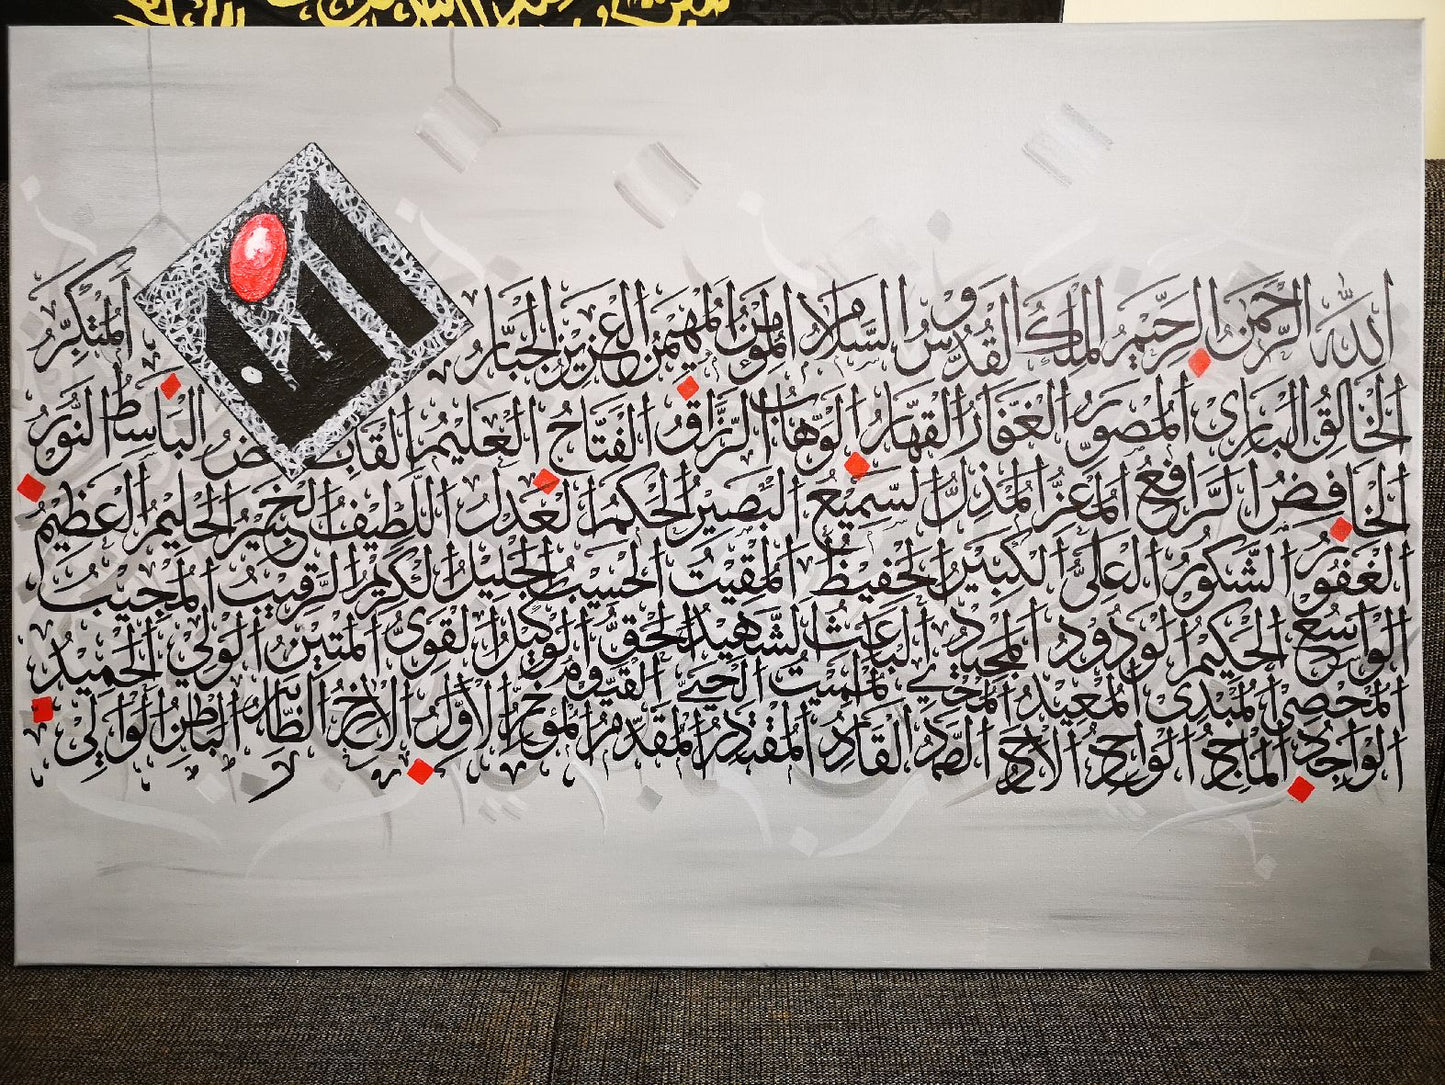 الله الرَّحْمٰن الرَّحِيْمُ المَلِكُ القُدُّوسُ السَّلَامُ المُؤْمِنُ المُهَيْمِنُ العَزِيز الجَبَّارُ المُتَكَبِّرُ
الخَالِقُ البَارِئُ المُصَوِّرُ الغَفَّارُ القَهَّارُ الوَهَّابُ الرَّزَّاقُ الفَتَّاحُ العَلِيْمُ القَابِضُ البَاسِطُ النُّوْرُ
الخَافِضُ الرَّافِعُ المُعِزُّ المُذِلُّ السَّمِيْعُ البَصِيْرُ الحَكَمُ العَدْلُ اللَّطِيْفُ الخَبِيْرُ الحَلِيْمُ العَظِيْمُ
الغَفُوْرُ الشَّكُوْرُ العَلِيُّ الكَبِيْرُ الحَفِيْظُ المُقِيْتُ الحَسِيْبُ الجَلِيْلُ الكَرِيْمُ الرَّقِيْبُ المُجِيْبُ
الوَاسِعُ الحَكِيْمُ الوَدُوْدُ المَجِيْدُ البَاعِثُ الشَّهِيْدُ الحَقُّ الوَكِيْلُ القَوِىُّ المَتِيْنُ الوَلِيُّ الحَمِيْدُ
المُحْصِي المُبْدِئ المُعِيْدُ المُحْيِي المُمِيْتُ الحَيُّ القَيُّومُ
الوَاجِدُ المَاجِدُ الوَاحِدُ الاَحَدُ الصَّمَدُ القَادِرُ المُقْتَدِرُ المُقَدِّمُ المُؤَخِّرُ الاَوَّلُ الاٰخِرُ الظَّاهِرُ البَاطِنُ الوَالِي